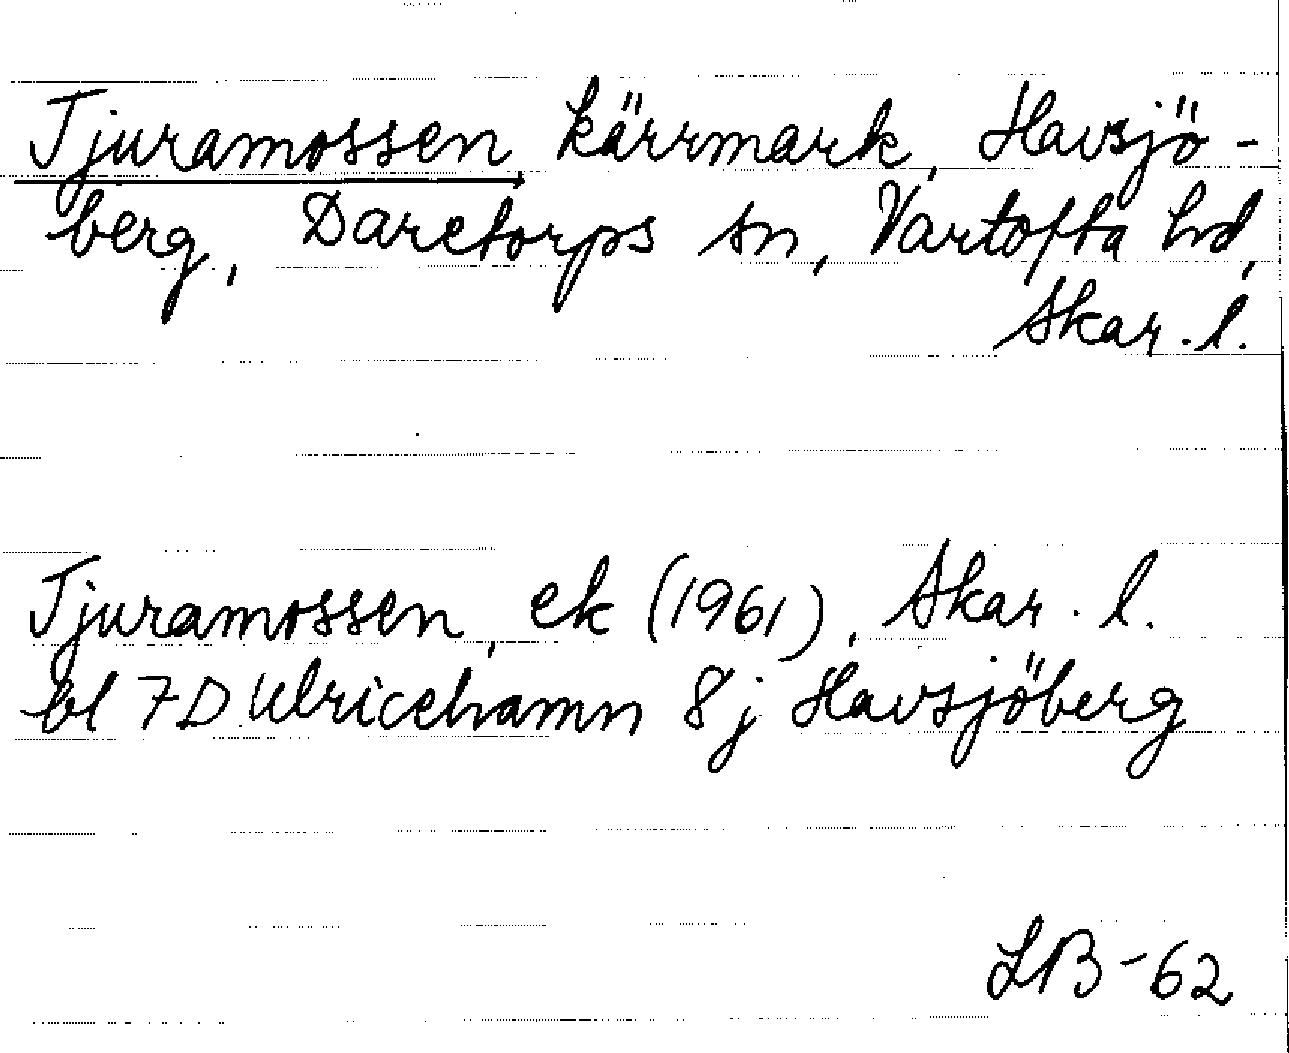 Tjuramossen kärrmark, Havsjö-
berg, Daretorps sn, Vartofta hd,
Skar. l.
Tjuramossen, ek (1961), Skar. l.
bl 7D Ulricehamn 8j Havsjöberg
LB-62